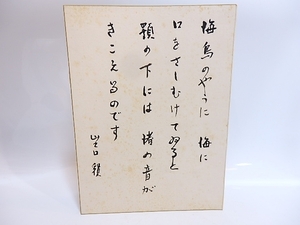 海鳥のやうに 海に
口をさしむけてゐると
顎の下には 渚の音が
きこえるのです
山之口貘